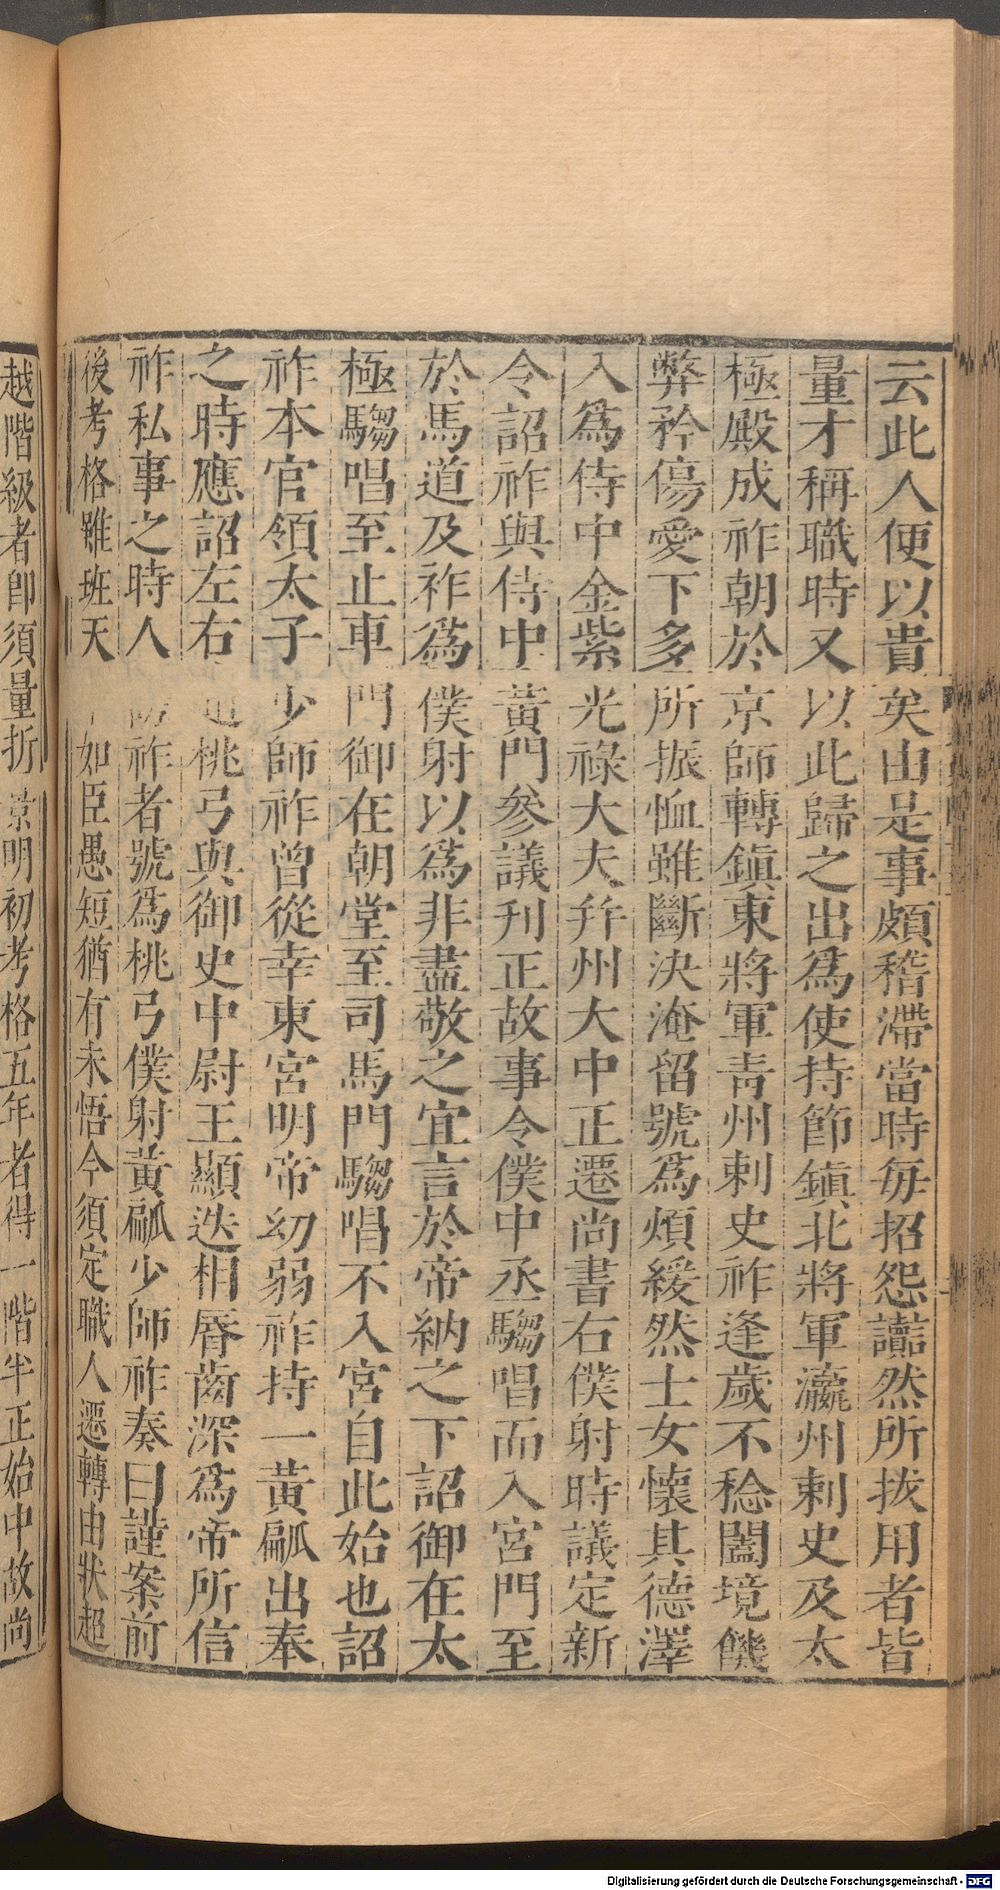 云此人便以貴矣由是事頗稽滯當時每招怨讟然所拔用者皆
量才稱職時又以此歸之出爲使持節鎭北將軍瀛州刺史及太
極殿成祚朝於京師轉鎭東將軍靑州刺史祚逢歲不稔闔境饑
弊矜傷愛下多所振恤雖斷決淹留號爲煩緩然士女懷其德澤
入爲侍中金紫光祿大夫幷州大中正遷尚書右僕射時議定新
令詔祚與侍中黃門參議刊正故事令僕中丞騶唱而入宮門至
於馬道及祚爲僕射以爲非盡敬之宜言於帝納之下詔御在太
極騶唱至止車門御在朝堂至司馬門騶唱不入宮自此始也詔
祚本官領太子少師祚曾從幸東宮明帝幼弱祚持一黃㼐出奉
之時應詔左右桃弓與御史中尉王顯迭相脣齒深爲帝所信
祚私事之時人祚者號爲桃弓僕射黃㼐少師祚奏曰謹案前
後考格雖班天如臣愚短猶有未悟今須定職人遷轉由狀超
越階級者卽須量折景明初考格五年者得一階半正始中故尚
Digitalisierung gefördert durch die Deutsche Forschungsgemeinschaft - DFG